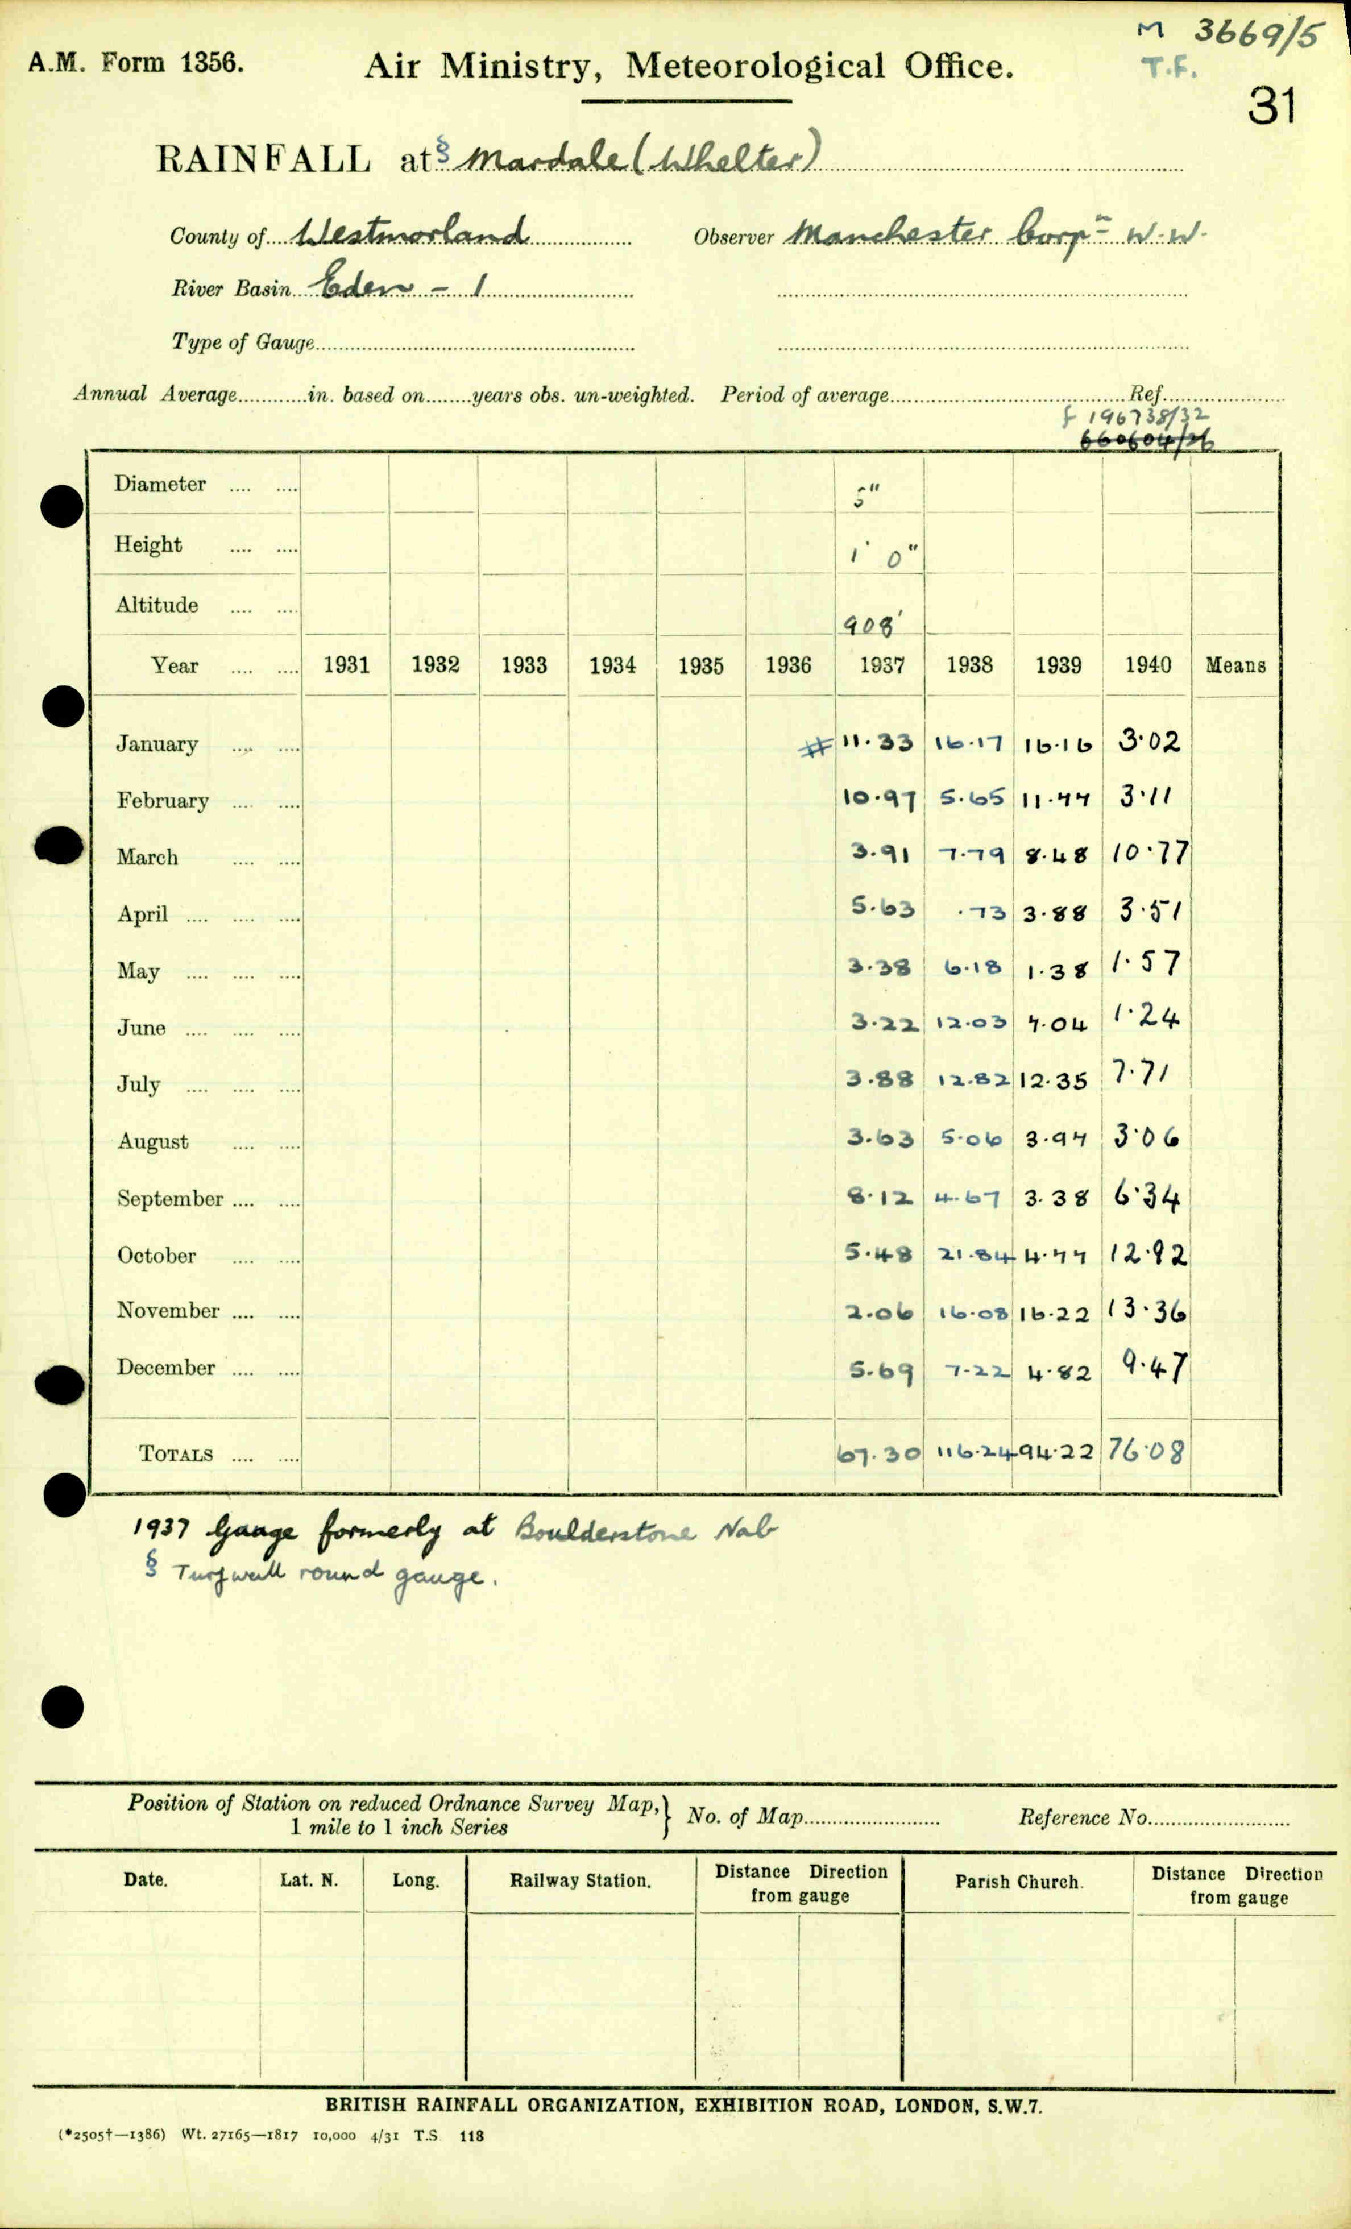 M 3669/5
A.M. Form 1356.
Air Ministry, Meteorological Office.
T.F.
31
RAINFALL at § Mardale (Whelter)
County of Westmorland Observer Manchester Corpn W.W.
River Basin Eden - 1
Type of Gauge
Annual Average in. based on years obs. un-weighted. Period of average Ref.
f 196738/32
660604/26
Diameter 5"
Height 1' 0"
Altitude 908'
Year 1931 1932 1933 1934 1935 1936 1937 1938 1939 1940 Means
January # 11.33 16.17 16.16 3.02
February 10.97 5.65 11.77 3.11
March 3.91 7.79 8.48 10.77
April 5.63 .73 3.88 3.51
May 3.38 6.18 1.38 1.57
June 3.22 12.03 7.04 1.24
July 3.88 12.82 12.35 7.71
August 3.63 5.06 3.97 3.06
September 8.12 4.67 3.38 6.34
October 5.48 21.84 4.77 12.92
November 2.06 16.08 16.22 13.36
December 5.69 7.22 4.82 9.47
TOTALS 67.30 116.24 94.22 76.08
1937 Gauge formerly at Boulderstone Nab
§ Turf wall round gauge.
Position of Station on reduced Ordnance Survey Map, } No. of Map Reference No.
1 mile to 1 inch Series
Date. Lat. N. Long. Railway Station. Distance Direction from gauge Parish Church. Distance Direction from gauge
BRITISH RAINFALL ORGANIZATION, EXHIBITION ROAD, LONDON, S.W.7.
(*2505†—1386) Wt. 27165—1817 10,000 4/31 T.S. 118